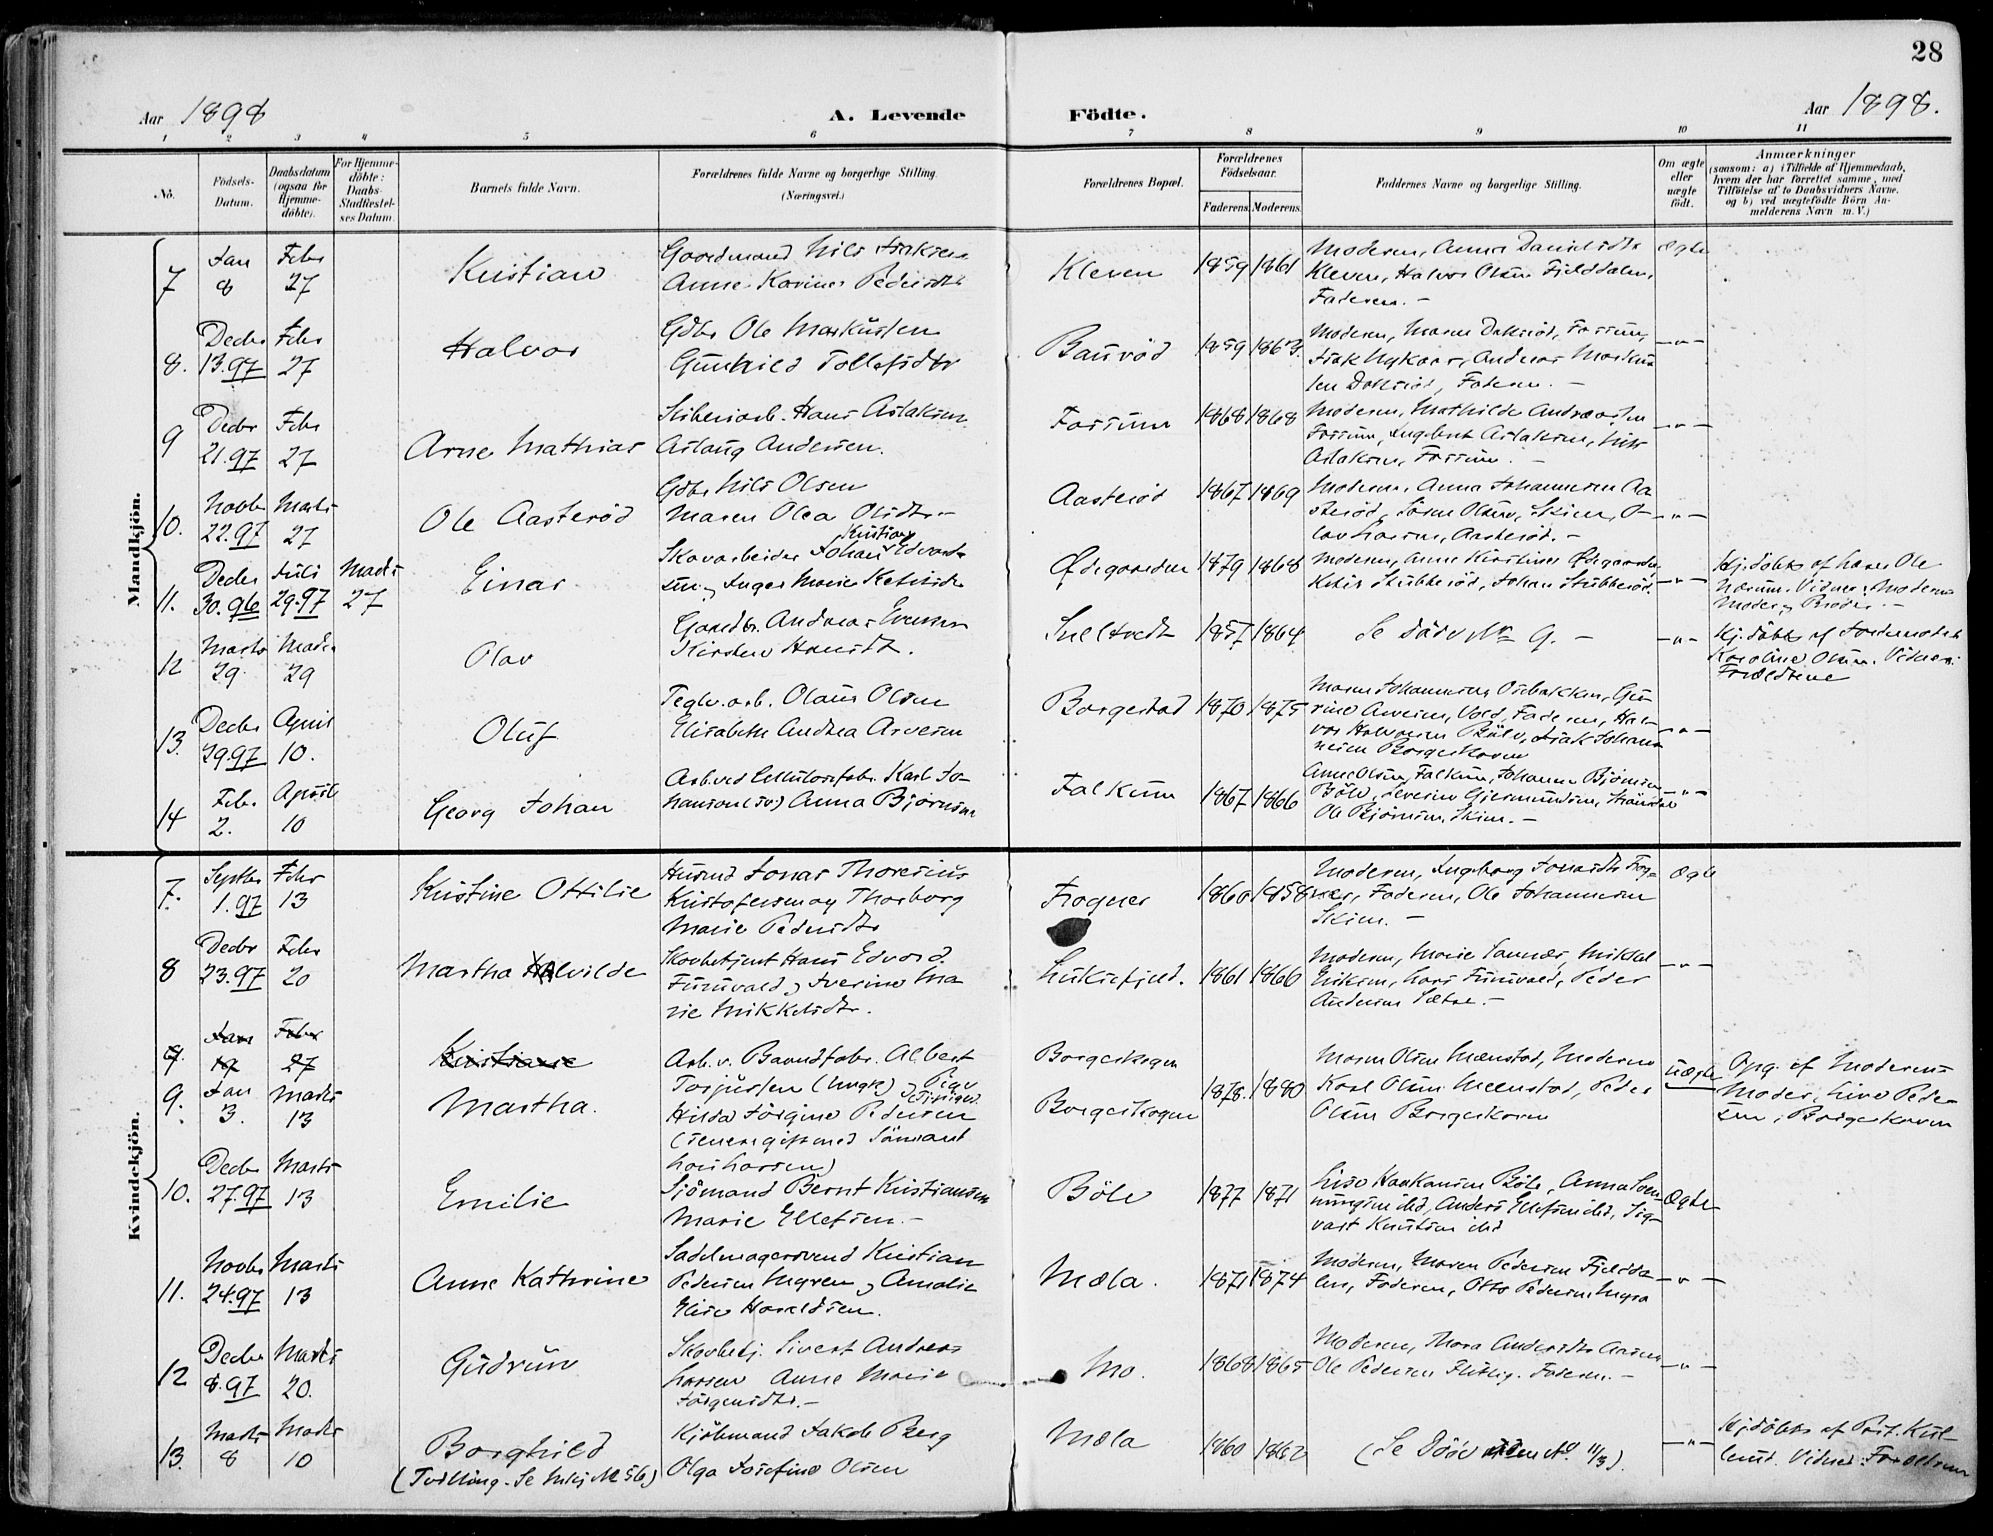 28
Aar 1898
A. Levende
Födte.
Aar 1898.
1 2 3 4 5 6 7 8 9 10 11
No.
Födsels-
Datum.
Daabsdatum
(ogsaa for
Hjemme-
döbte).
For Hjemme-
döbte:
Daabs-
Stadfæstel-
ses Datum.
Barnets fulde Navn.
Forældrenes fulde Navne og borgerlige Stilling.
(Næringsvei.)
Forældrenes Bopæl.
Forældrenes
Födselsaar.
Faderens. Moderens.
Faddernes Navne og borgerlige Stilling.
Om ægte
eller
uægte
født.
Anmærkninger
(saasom: a) i Tilfælde af Hjemmedaab,
hvem der har forrettet samme, med
Tilföielse af to Daabsvidners Navne.
og b) ved uægtefödte Börn An-
melderens Navn m.V.)
Mandkjön.
7
Jan
8
Febr
27
Kristian
Gaardmand Nils Isaksen
Anne Karine Pedersdtr
Kleven
1859 1861
Moderen, Anna Danielsdtr
Kleven, Halvor Olsen Fjelddalen,
Faderen. -
Ægte
8.
Decbr
13.97
Febr
27
Halvor
Gdbr Ole Markussen
Gunhild Tollefsdtr
Baurød
1859 1863.
Moderen, Maren Dalsrød, Fossum,
Isak Nykaas, Andreas Marku
sen Dalsrød, Faderen. -
-"-
9
Decbr
21.97
Febr
27
Arne Mathias
Sliberiarb. Hans Aslaksen
Aslaug Andersen.
Fossum
1868 1868
Moderen, Mathilde Andreassen
Fossum, Ingebret Aslaksen, Nils
Aslaksen, Fossum. -
-"-
10.
Novbr
22.97
Marts
27
Ole Aasterød
Gdbr Nils Olsen
Maren Olea Olsdtr -
Aasterød
1867 1869
Moderen, Anna Johannesen Aa
sterød, Søren Olsen, Skien, O-
lav Larsen, Aasterød. -
-"-
11.
Decbr
30.96
Juli
29.97
Marts
27
Einar
Kristian
Skovarbeider Johan Edvard-
sen og Inger Marie Ketilsdtr
Ødegaarden
1879 1868
Moderen, Anne Kirstine Ødegaarden
Ketil Stubberød, Johan Stubberød.
-"-
Hj.döbt af Lærer Ole
Nærum. Vidner: Moderens
Moder og Broder. -
12
Marts
29
Marts
29
Olav
Gaardbr. Andreas Evensen
Kirsten Hansdtr.
Sneltvedt
1857 1864
Se døde No 9. -
-"-
Hj.döbt af Jordemoder
Karoline Olsen. Vidner:
Forældrene
13.
Decbr
29.97
April
10.
Oluf
Teglv.arb. Olaus Olsen
Elisabeth Andrea Arvesen
Borgestad
1870 1875
Maren Johannesen Osebakken, Gu-
rine Arvesen, Vold, Faderen, Hal-
vor Halvorsen Bøle, Isak Johan-
nesen Borgeskoven
-"-
14
Febr
2.
April
10
Georg Johan
Arb.ved Cellulosefabr. Karl Jo-
hanson (sv) Anna Bjørnsen
Falkum
1867 1866
Anne Olsen, Falkum, Johanne Bjørnsen
Bøle, Severin Gjermundsen, Strømdal
Ole Bjørnsen, Skien. -
-"-
Kvindekjön.
7.
Septbr
1.97
Febr
13
Kristine Ottilie
Husmd Jonas Thorenius
Kristofersen og Thorborg
Marie Pedersdtr
Frogner
1860 1858
Moderen, Ingeborg Jonasdtr Frog-
ner, Faderen, Ole Johannesen
Skien. -
Ægte
8
Decbr
23.97
Febr
20
Martha Alvilde
Skovbetjent Hans Edvard
Furuvald og Iverine Ma
rie Mikkelsdtr.
Luksefjeld.
1861 1866
Moderen, Marie Sannes, Mikkel
Eriksen, Lars Furuvald, Peder
Andersen Sætre. -
-"-
9.
Jan
19
Febr
27
Kristiane
Borgeskogen
9.
Jan
3.
Marts
13
Martha.
Arb. v. Baandfabr. Albert
Torjussen (Ungk.) og Pige
Hilda Jörgine Pedersen
(senere gift med Sömand
Lars Larsen)
Borgeskogen
1878. 1880
Maren Olsen Menstad, Moderen
Karl Olsen Menstad, Peder
Olsen Borgeskoven
Uægte
Opg. af Moderens
Moder, Line Peder-
sen, Borgeskoven
10.
Decbr
27.97
Marts
13
Emilie
Sjömand Bernt Kristiansen
Marie Ellefsen. -
Böle
1877 1871
Lise Haakonsen Böle, Anna Svenn-
ungsen ibd, Anders Ellefsen ibd, Sig-
vart Knutsen ibd
Ægte
11.
Novbr
24.97
Marts
13
Anne Kathrine
Sadelmagersvend Kristian
Pedersen Myren og Amalie
Elise Haraldsen.
Mæla.
1871 1874
Moderen, Maren Pedersen Fjeldda-
len, Faderen, Otto Pedersen Myra
-"-
12
Decbr
8.97
Marts
20.
Gudrun
Skovbetj. Sivert Andreas
Larsen Anne Marie
Jörgensdtr. -
Mo.
1868 1865
Moderen, Thora Andersdtr Aasen
Ole Pedersen Fluteig. Faderen. -
-"-
13.
Marts
8
Marts
10
Borghild
(Tvilling. Se Mkj No 56)
Kjöbmand Jakob Berg
Olga Josefine Olsen
Mæla
1860 1862
(Se Döde No. 11/3).
-"-
Hj.döbt af Præst. Kval
lerud. Vidner: Forældrene